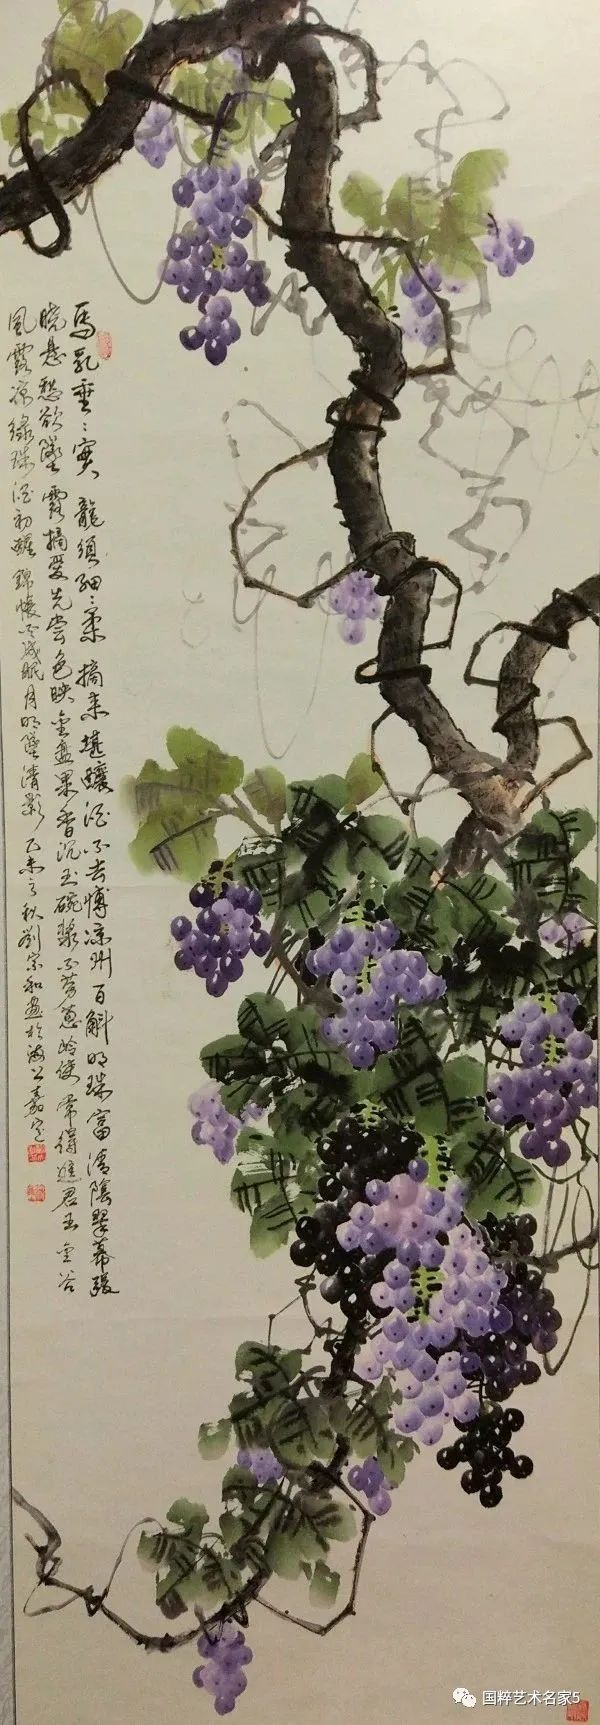 馬乳垂〻實龍須細〻柔摘来堪釀酒不去博涼州百斛明珠富清陰翠幕
曉懸愁欲墜露摘愛先嘗色映金盤果香沉玉碗漿不勞蔥嶺使常得進君王金谷
風露涼綠珠酒初醒珠帳冷成眠月明墜清影乙未之秋劉宗和畫於海上嘉定
国粹艺术名家5